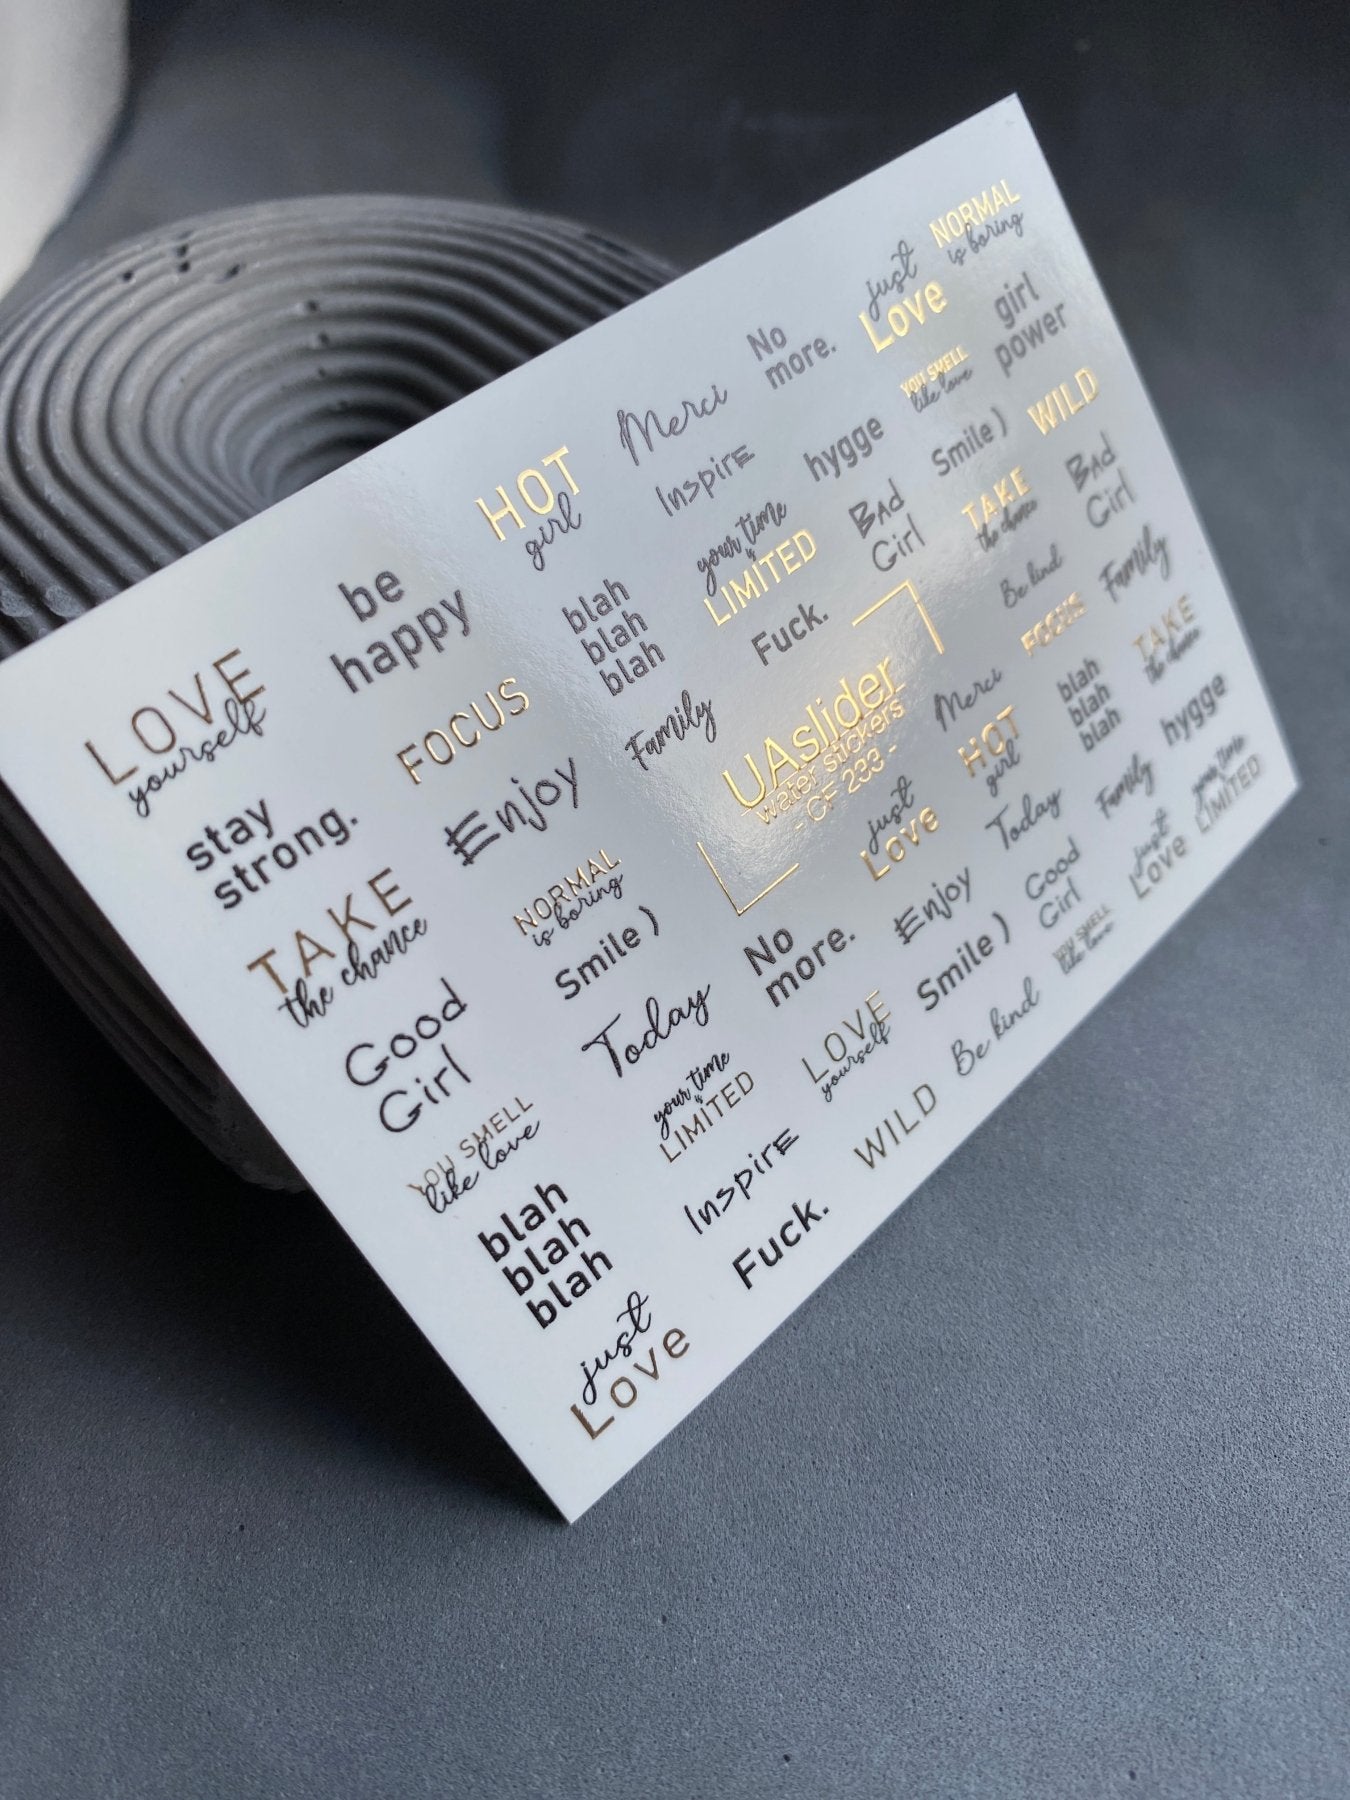 LOVE
yourself
be
happy
HOT
girl
Merci
No
more.
just
Love
NORMAL
is boring
stay
strong.
FOCUS
blah
blah
blah
Inspire
hygge
YOU SMELL
like love
girl
power
TAKE
the chance
Enjoy
Family
your time
is
LIMITED
BAD
Girl
Smile )
WILD
Good
Girl
NORMAL
is boring
Fuck.
TAKE
the chance
BAD
Girl
YOU SMELL
like love
Smile )
UAslider
water stickers
- CF 233 -
Be kind
Family
blah
blah
blah
Today
No
more.
just
Love
Merci
FOCUS
TAKE
the chance
just
Love
your time
is
LIMITED
LOVE
yourself
Enjoy
HOT
girl
blah
blah
blah
hygge
Inspire
Smile )
Today
Family
your time
is
LIMITED
Fuck.
WILD
Be kind
Good
Girl
YOU SMELL
like love
just
Love